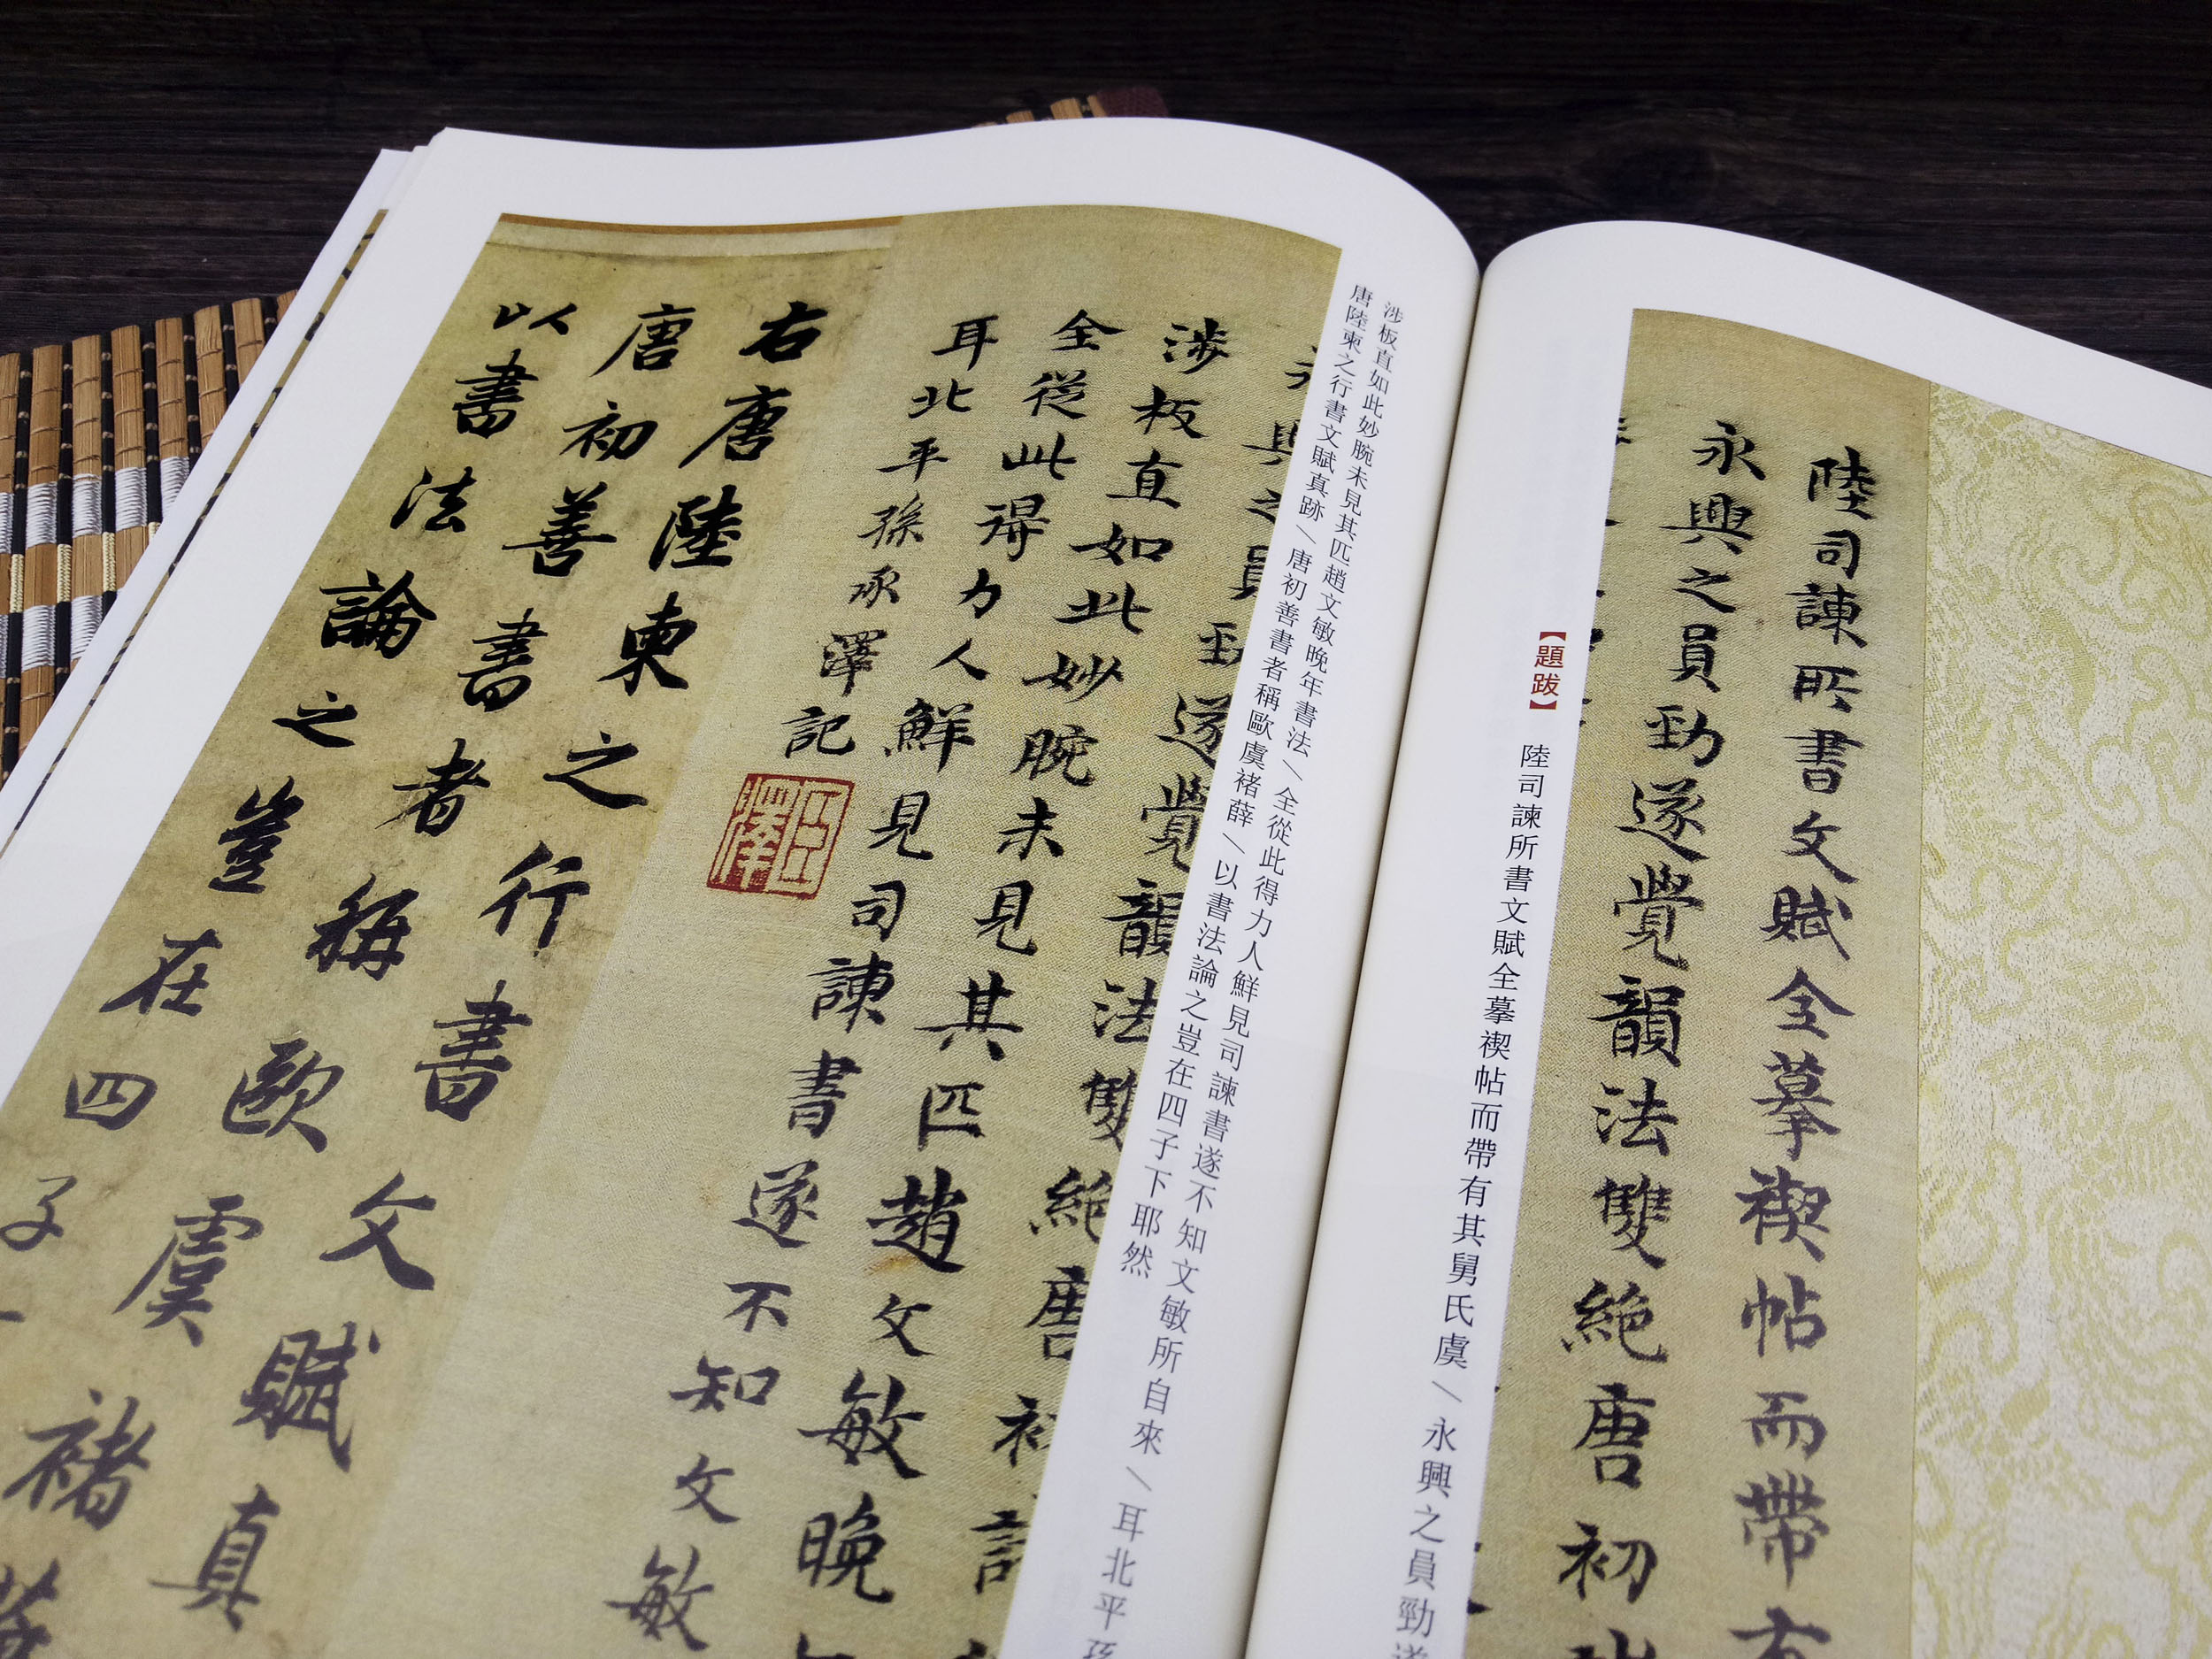 陸司諫所書文賦全摹禊帖而帶有
永興之員勁遂覺韻法雙絶唐初
【題跋】 陸司諫所書文賦全摹禊帖而帶有其舅氏虞\永興之員勁遂
涉板直如此妙腕未見其匹趙文敏晚年書法\全從此得力人鮮見司諫書遂不知文敏所自來\耳北平孫
唐陸柬之行書文賦真跡\唐初善書者稱歐虞褚薛\以書法論之豈在四子下耶然
興之員勁遂覺韻法雙絶唐初
涉板直如此妙腕未見其匹趙文敏晚
全從此得力人鮮見司諫書遂不知文敏
耳北平孫承澤記
右唐陸柬之行書文賦真
唐初善書者稱歐虞褚
以書法論之豈在四子